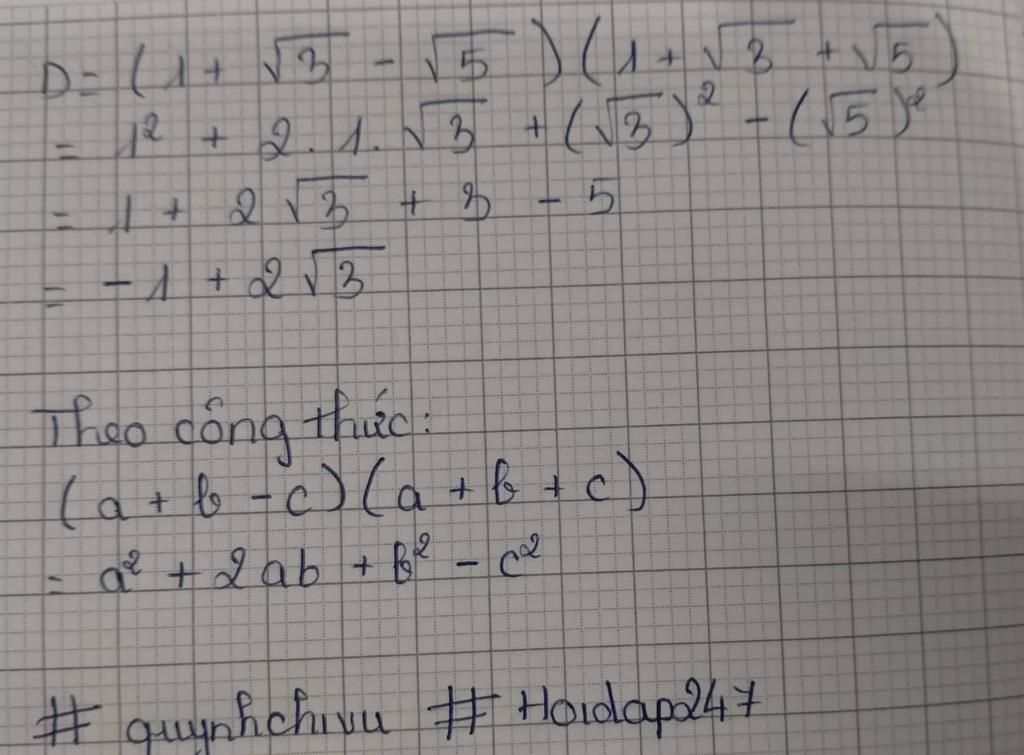 D = (1 + √3 - √5)(1 + √3 + √5)
= 1² + 2.1.√3 + (√3)² - (√5)²
= 1 + 2√3 + 3 - 5
= -1 + 2√3
Theo công thức:
(a + b - c)(a + b + c)
= a² + 2ab + b² - c²
# quynhchivu # Hoidap247